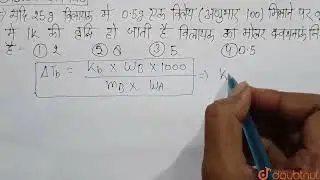 यदि 25g विलायक में 0.5g एक विलेय (अणुभार 100) मिलाने पर
में 1K की वृद्धि हो जाती है विलायक का मोलर
है - ① 2 ② 6 ③ 5 ④ 0.5
ΔTb = Kb × WB × 1000 / mB × WA ⇒ K
doubtnut